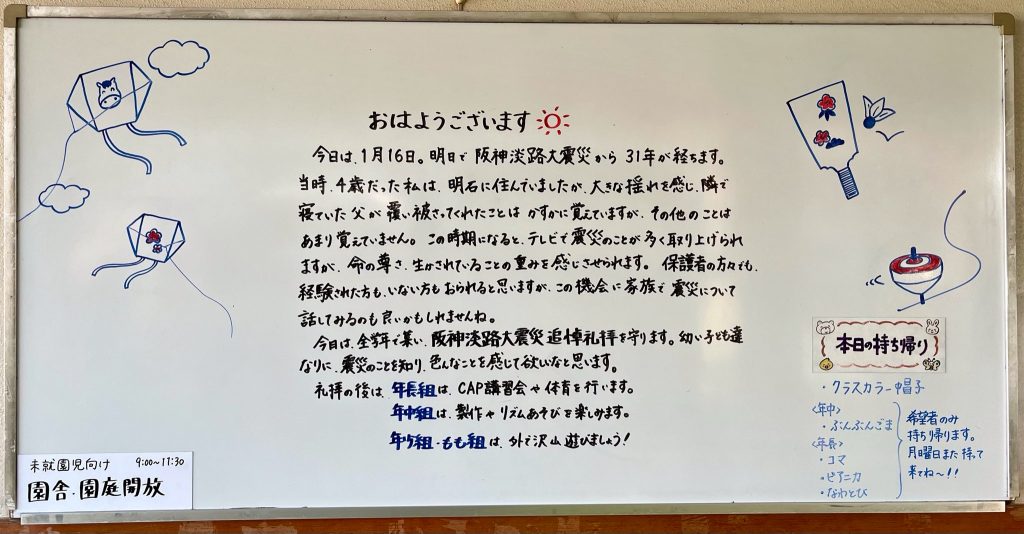 おはようございます
今日は、1月16日。明日で阪神淡路大震災から31年が経ちます。
当時、4歳だった私は、明石に住んでいましたが、大きな揺れを感じ、隣で
寝ていた父が覆い被さってくれたことはかすかに覚えていますが、その他のことは
あまり覚えていません。この時期になると、テレビで震災のことが多く取り上げられ
ますが、命の尊さ、生かされていることの重みを感じさせられます。保護者の方々でも、
経験された方も、いない方もおられると思いますが、この機会に家族で震災について
話してみるのも良いかもしれませんね。
今日は、全学年で集い、阪神淡路大震災追悼礼拝を守ります。幼い子ども達
なりに、震災のことを知り、色んなことを感じて欲しいなと思います。
礼拝の後は、年長組は、CAP講習会や体育を行います。
年中組は、製作やリズムあそびを楽しみます。
年少組・もも組は、外で沢山遊びましょう!
本日の持ち帰り
・クラスカラー帽子
<年中>
・ぶんぶんごま
<年長>
・コマ
・ピアニカ
・なわとび
希望者のみ
持ち帰ります。
月曜日また持って
来てね〜!!
未就園児向け 9:00~11:30
園舎・園庭開放